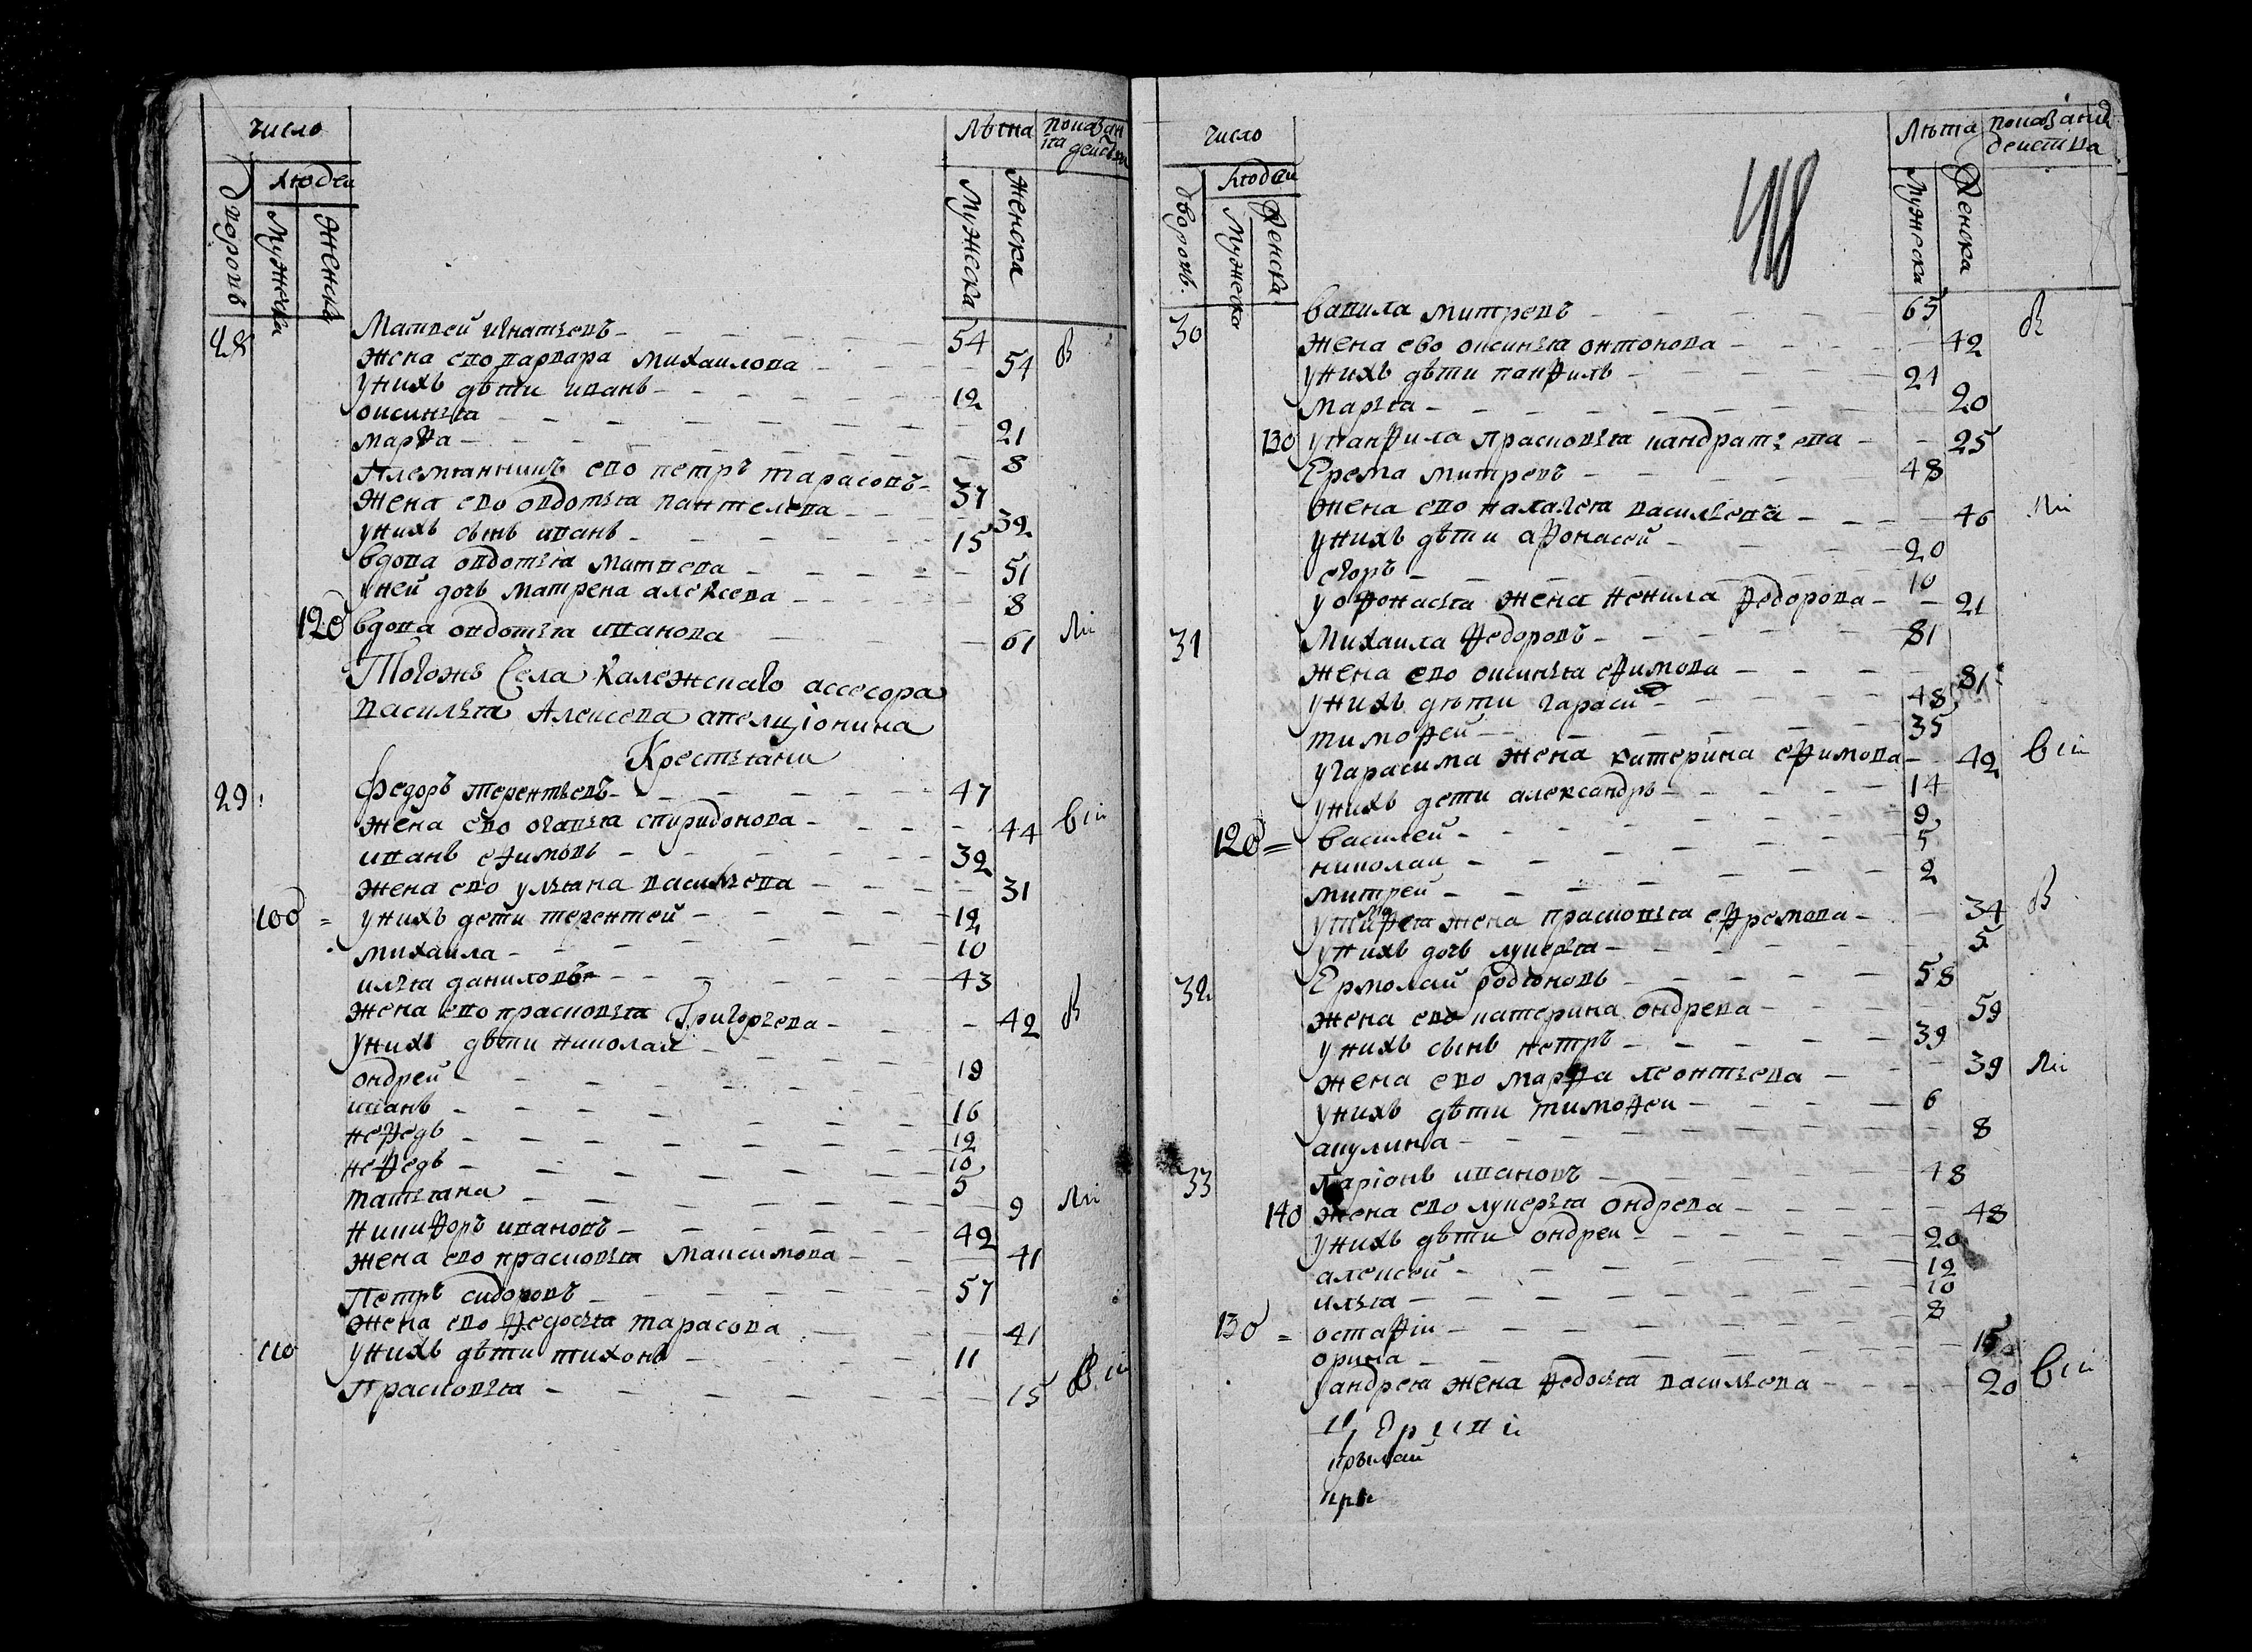 число
Лѣта
показан
иа дейсва
людеи
дворовъ
Мужеска
женска
Мужеска
женска
28 Матвей игнатьевъ 54 В
жена ево варвара михаилова 54
у нихъ дѣти иванъ 12
оксинья 21
марфа 8
племянникъ ево петръ тарасовъ 37
жена ево овдотья пантелева 39
у нихъ сынъ иванъ 15
вдова овдотья матвева 51
у ней дочь матрена алексева 8
120 вдова овдотья иванова 61 Ли
Тогожъ Села Калежскаго ассесора
василья Алексева
Крестьяни
29 Федоръ терентьевъ 47
жена ево огафья спиридонова 44 вси
иванъ ефимовъ 32
жена ево ульяна васильева 31
100 = у нихъ дети терентей 12
михаила 10
илья даниловъ 43
жена ево прасковья Григорьева 42 В
у нихъ дѣти николай
ондрей 19
иванъ 16
нефедъ 12
нефедъ 10
татьяна 5
9 Ли
никифоръ ивановъ 42
жена ево прасковья максимова 41
Петръ сидоровъ 57
жена ево федосья тарасова 41
110 у нихъ дѣти тихонъ 11
Прасковья 15 В си
число
Лѣта
показаніи
деиства
людеи
дворовъ.
Мужеска
Женска
Мужеска
Женска
418
30 вавила митревъ 65 В
жена ево оксинья онтонова 42
у нихъ дѣти панфилъ 21
марья 20
130 у панфила прасковья кандратьева 25
Ерема митревъ 48
жена ево наталья васильева 46 Ли
у нихъ дѣти афонасей 20
егоръ 10
у офонасья жена ненила федорова 21
31 Михаила федоровъ 81
жена ево оксинья ефимова 81
у нихъ дѣти гараси 48
тимофей 35
у гарасима жена катерина ефимова 42 вси
у нихъ дети александръ 14
василей 9
120 = николаи 5
митрей 2
у тимофея жена прасковья ефремова 34 В
у нихъ дочь лукерья 5
32 Ермолаи родионовъ 58
жена ево катерина ондрева 59
у нихъ сынъ петръ 39
жена ево марфа леонтьева 39 Ли
у нихъ дѣти тимофеи 6
акулина 8
33 ларіонъ ивановъ 48
140 жена ево лукерья ондрева 48
у нихъ дѣти ондреи 20
алексей 12
илья 10
130 = остафіи 8
орина 15
у андрея жена федосья васильева 20 вси